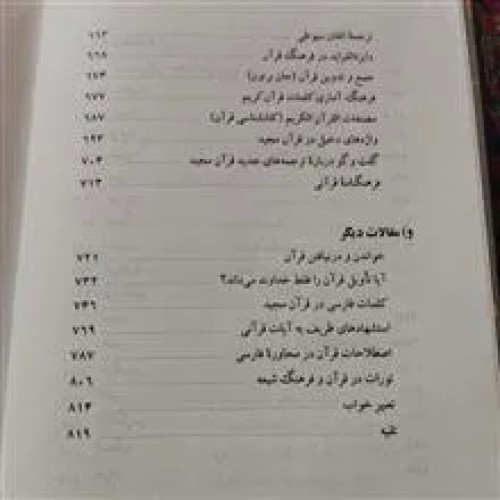 ترجمهٔ اتقان سیوطی ۶۶۳
دایرةالفراید در فرهنگ قرآن ۶۶۸
جمع و تدوین قرآن (جان برتون) ۶۷۳
فرهنگ آماری کلمات قرآن کریم ۶۷۷
مصنفات القرآن الکریم (کتابشناسی قرآن) ۶۸۷
واژه‌های دخیل در قرآن مجید ۶۹۳
گفت و گو دربارهٔ ترجمه‌های جدید قرآن مجید ۷۰۴
فرهنگنامهٔ قرآنی ۷۱۳
و) مقالات دیگر
خواندن و درنیافتن قرآن ۷۲۱
آیا تأویل قرآن را فقط خداوند می‌داند؟ ۷۳۲
کلمات فارسی در قرآن مجید ۷۴۶
استشهادهای ظریف به آیات قرآنی ۷۶۹
اصطلاحات قرآن در محاورهٔ فارسی ۷۸۷
تورات در قرآن و فرهنگ شیعه ۸۰۶
تعبیر خواب ۸۱۴
تقیه ۸۱۹